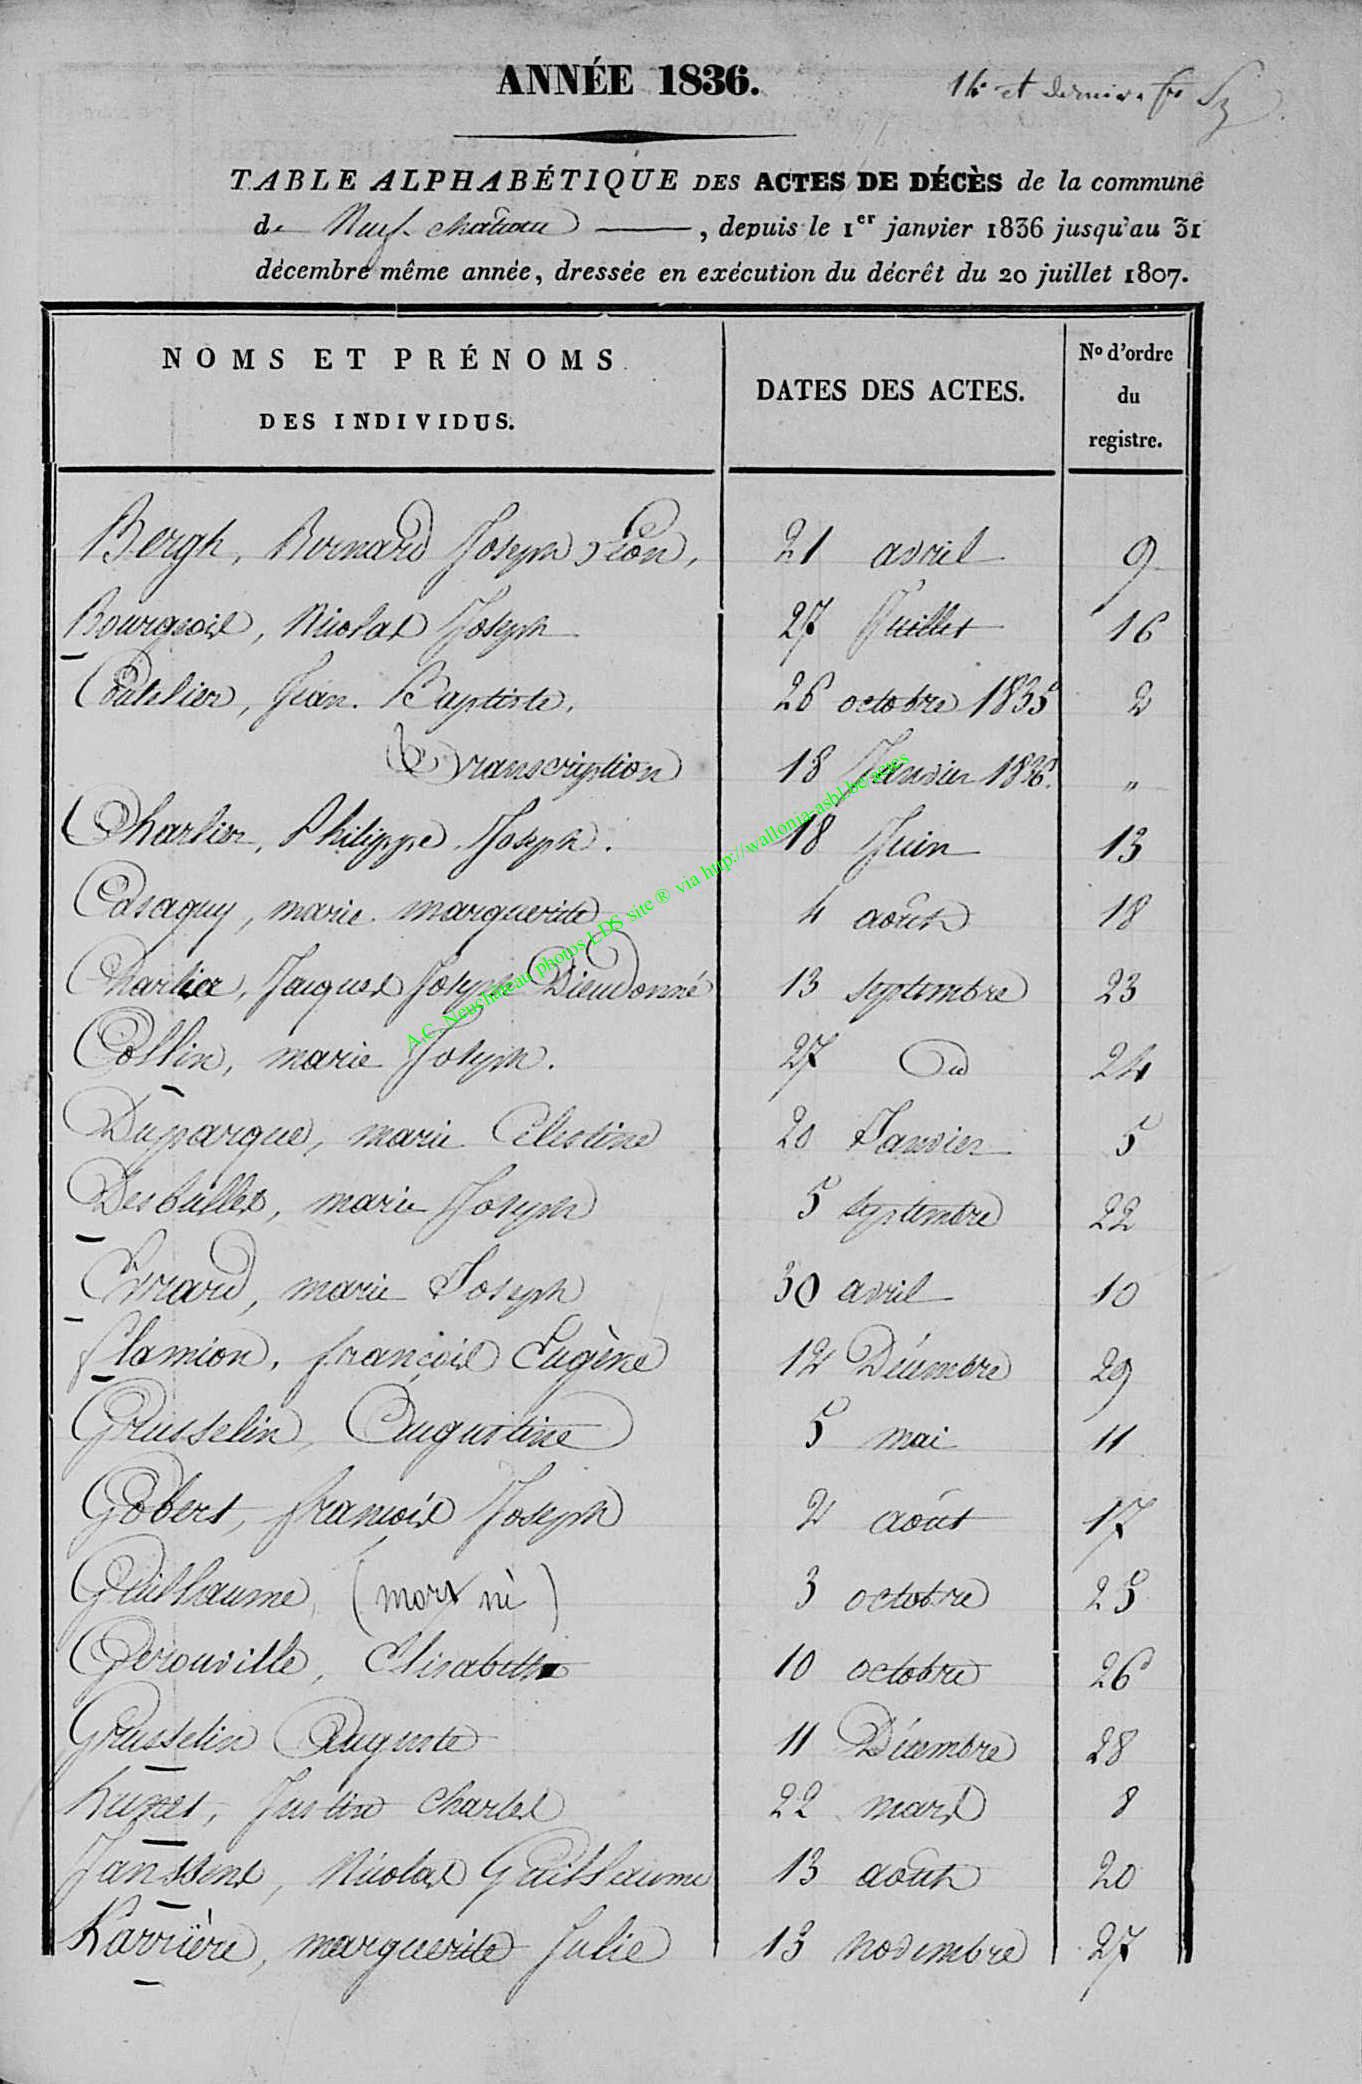 ANNÉE 1836.
14e et dernier fe
TABLE ALPHABÉTIQUE DES ACTES DE DÉCÈS de la commune
de Neufchateau , depuis le 1er janvier 1836 jusqu'au 31
décembre même année, dressée en exécution du décrêt du 20 juillet 1807.
NOMS ET PRÉNOMS DES INDIVIDUS. DATES DES ACTES. No d'ordre du registre.
Bergh, Bernard Joseph Léon, 21 avril 9
Bourgeois, Nicolas Joseph 27 Juillet 16
Coutelier, Jean Baptiste, 26 octobre 1835 2
Transcription 18 Janvier 1836. "
Charlier, Philippe Joseph. 18 Juin 13
Casaquy, marie marguerite 4 août 18
Charlier, Jacques Joseph Dieudonné 13 septembre 23
Collin, marie Joseph. 27 do 24
Duparque, marie Celestine 20 Janvier 5
Desbulles, marie Joseph 5 septembre 22
Evrard, marie Joseph 30 avril 10
flamion, françois Eugène 12 Décembre 29
Grusselin, Augustine 5 mai 11
Gobert, françois Joseph 2 août 17
Guillaume, (mort né) 3 octobre 25
Gerouville, Elisabeth 10 octobre 26
Grusselin Auguste 11 Décembre 28
Justin Charles 22 mars 8
Janssens, Nicolas Guillaume 13 août 20
Karrière, marguerite Julie 13 novembre 27
A.C. Neuchâteau photos LDS site ® via http://wallonia-asbl.be/actes